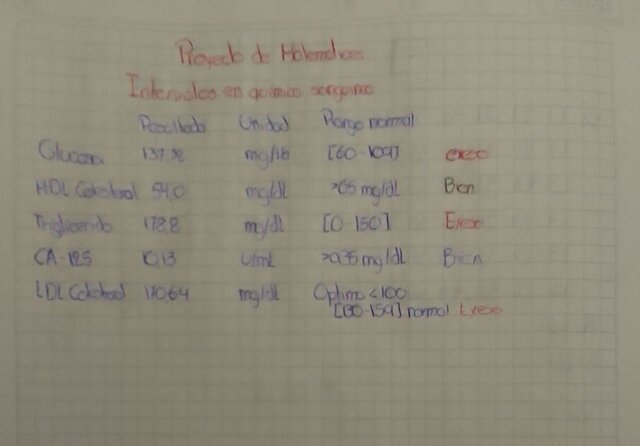 Proyecto de Matematicas
Intervalos en quimica sanguinea
Resultado Unidad Rango normal
Glucosa 137,32 [60-109] exeso
HDL Colesterol 54,0 mg/dL >65 mg/dL Bien
Triglicerido 178,8 mg/dL [0-150] Exeso
CA-125 10,13 U/mL mg/dL Bien
LDL Colesterol mg/dL Optimo <100
normal Exeso